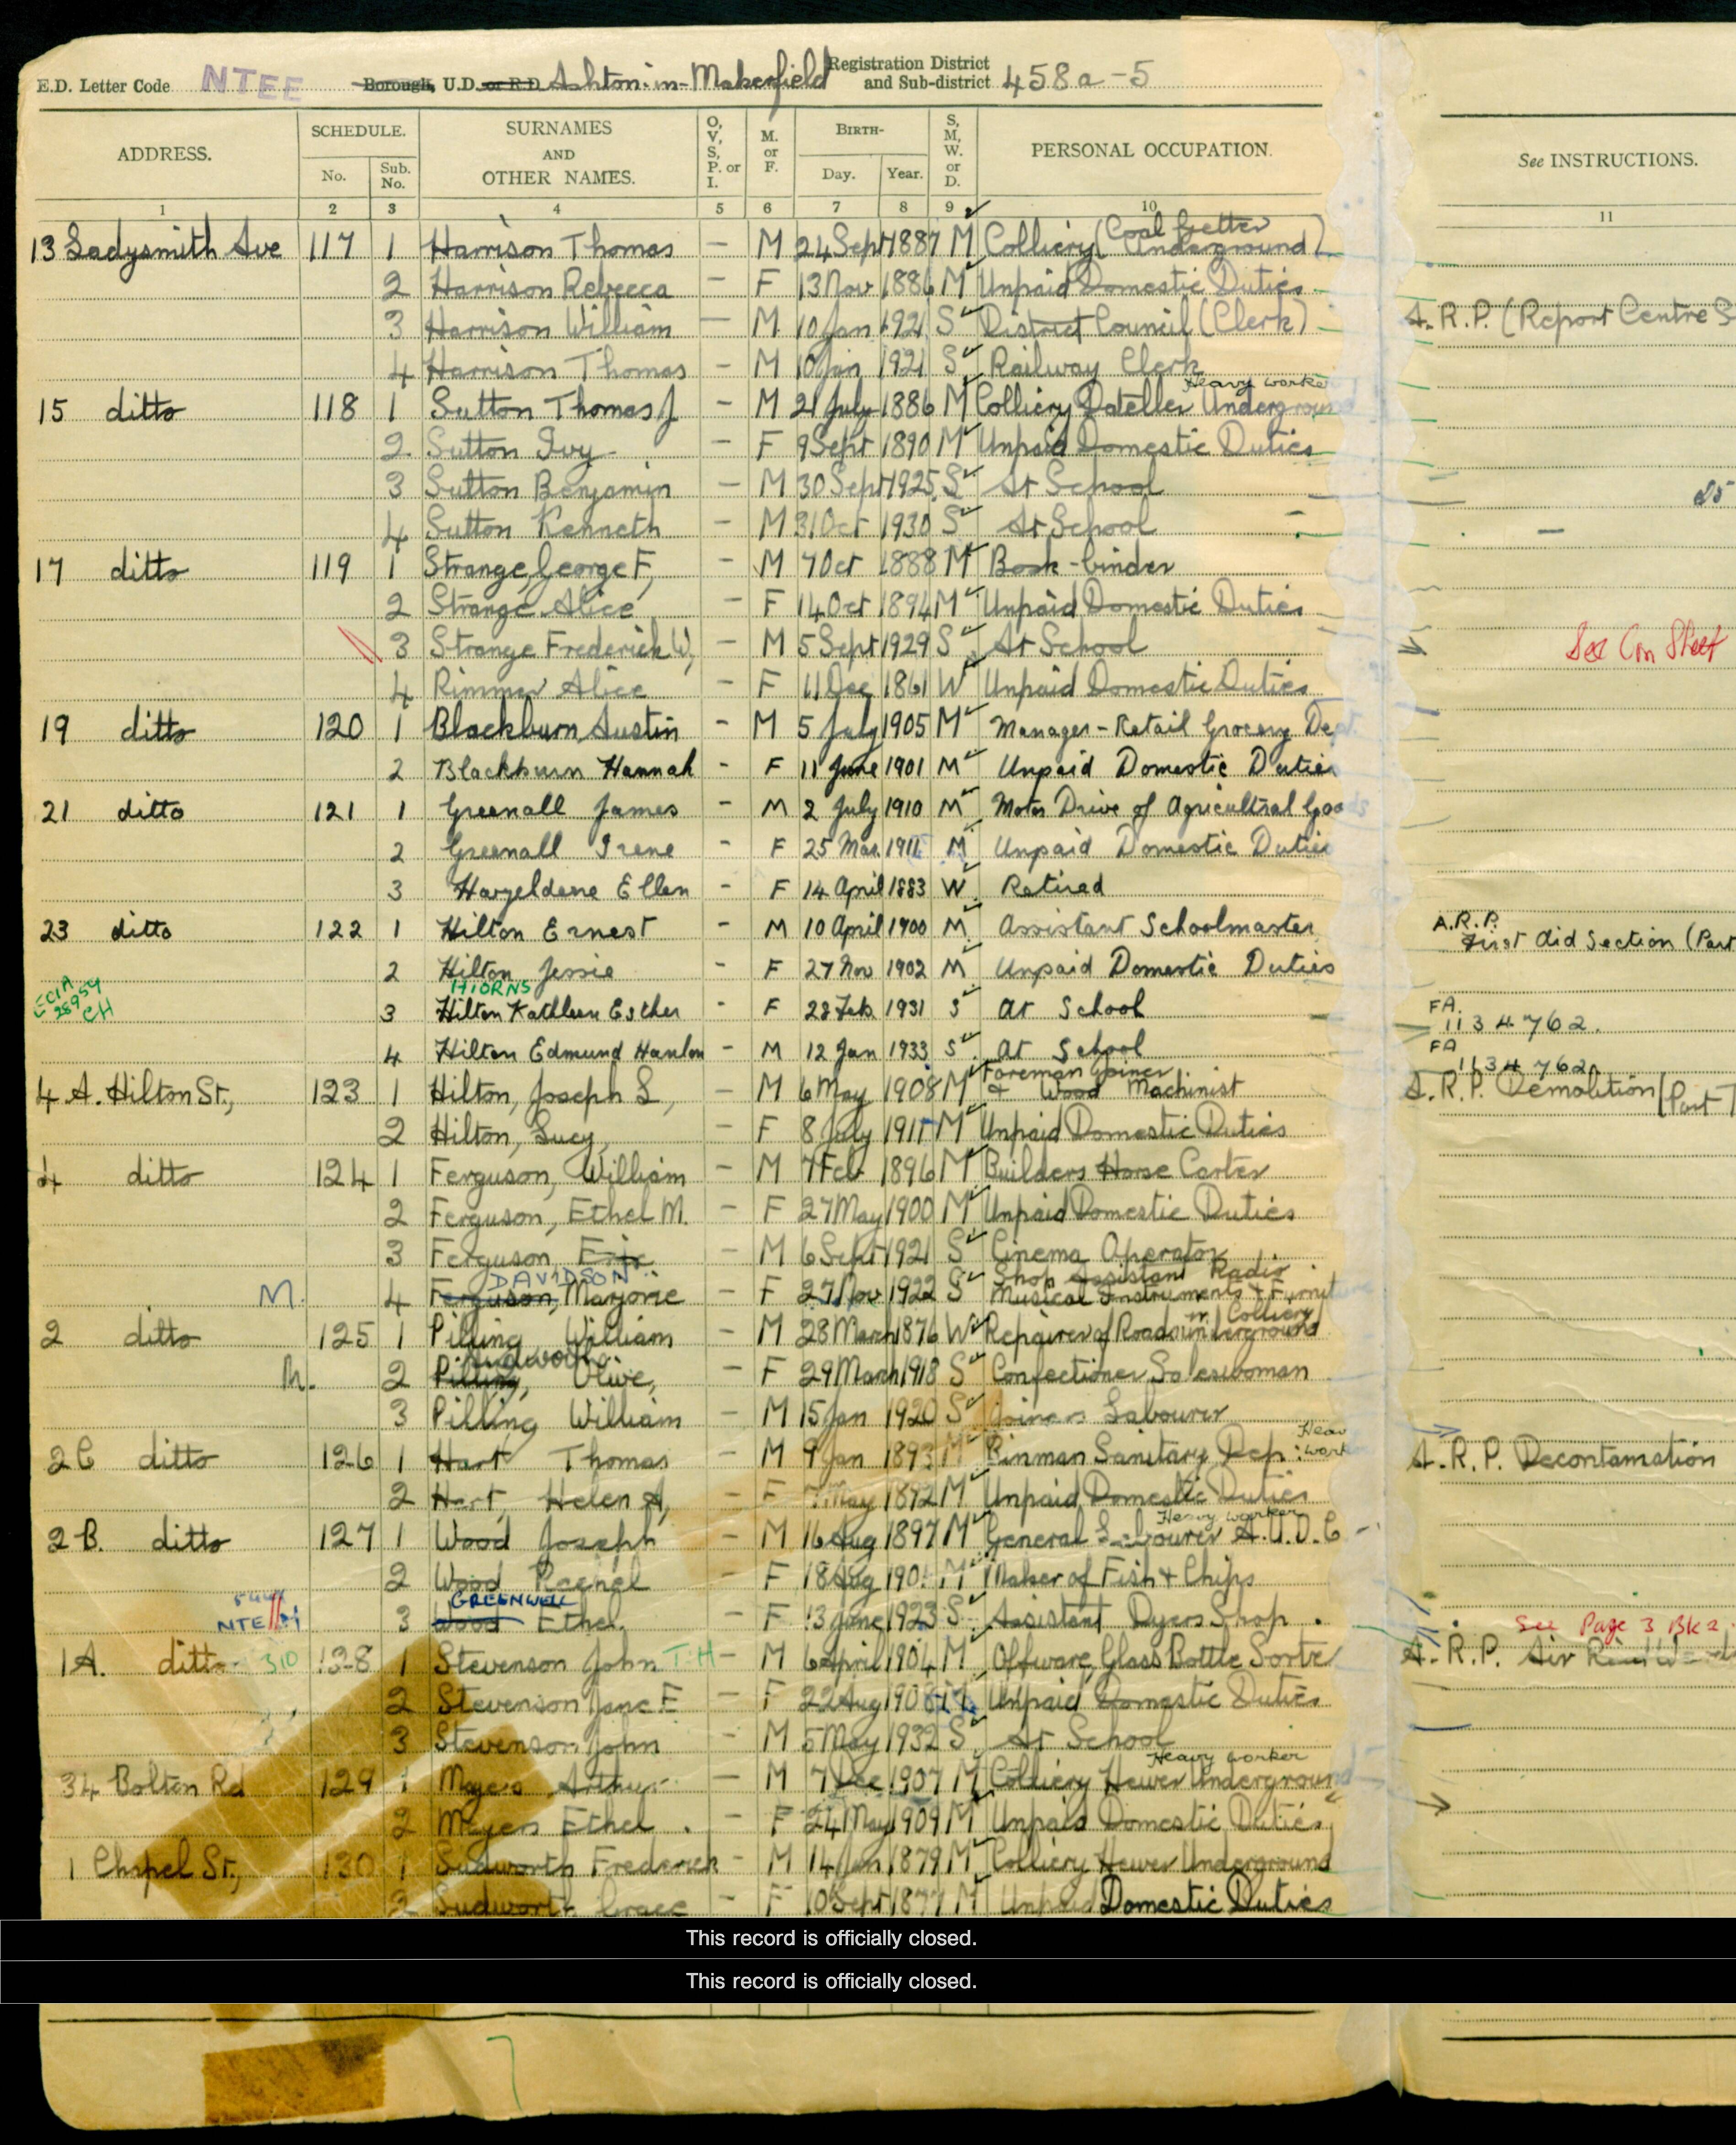 E.D. Letter Code NTEE Borough, U.D. or R.D. Ashton-in-Makerfield Registration District and Sub-district 458a-5
ADDRESS. SCHEDULE. No. Sub. No. SURNAMES AND OTHER NAMES. O, V, S, P. or I. M. or F. BIRTH- Day. Year. S, M, W. or D. PERSONAL OCCUPATION. See INSTRUCTIONS.
1 2 3 4 5 6 7 8 9 10 11
13 Ladysmith Ave 117 1 Harrison Thomas – M 24 Sept 1887 M Colliery (Coal Getter Underground)
2 Harrison Rebecca – F 13 Nov 1886 M Unpaid Domestic Duties
3 Harrison William – M 10 Jan 1921 S District Council (Clerk) A.R.P. (Report Centre S
4 Harrison Thomas – M 10 Jan 1921 S Railway Clerk
15 ditto 118 1 Sutton Thomas J – M 21 July 1886 M Colliery Dataller Underground Heavy worker
2 Sutton Ivy – F 9 Sept 1890 M Unpaid Domestic Duties
3 Sutton Benjamin – M 30 Sept 1925 S At School
4 Sutton Kenneth – M 31 Oct 1930 S At School –
17 ditto 119 1 Strange, George F, – M 7 Oct 1888 M Book-binder
2 Strange Alice – F 14 Oct 1894 M Unpaid Domestic Duties
3 Strange Frederick W, – M 5 Sept 1929 S At School See Cm Sheet
4 Rimmer Alice – F 11 Dec 1861 W Unpaid Domestic Duties
19 ditto 120 1 Blackburn, Austin – M 5 July 1905 M Manager - Retail Grocery Dept
2 Blackburn Hannah – F 11 June 1901 M Unpaid Domestic Duties
21 ditto 121 1 Greenall James – M 2 July 1910 M Motor Drive of Agricultral Goods
2 Greenall Irene – F 25 Mar. 1911 M Unpaid Domestic Duties
3 Hazeldene Ellen – F 14 April 1883 W Retired
23 ditto 122 1 Hilton Ernest – M 10 April 1900 M Assistant Schoolmaster A.R.P. First Aid Section (Part
2 Hilton Jessie – F 27 Nov 1902 M Unpaid Domestic Duties
HIORNS
28959 CH 3 Hilton Kathleen Esther F 28 Feb. 1931 S At School FA. 1134762.
4 Hilton Edmund Hanlon – M 12 Jan 1933 S At School FA 1134762.
4 A. Hilton St, 123 1 Hilton, Joseph L, – M 6 May 1908 M Foreman Joiner & Wood Machinist A.R.P. Demolition (Part T
2 Hilton, Lucy, – F 8 July 1911 M Unpaid Domestic Duties
4 ditto 124 1 Ferguson, William – M 7 Feb 1896 M Builders Horse Carter
2 Ferguson, Ethel M. – F 27 May 1900 M Unpaid Domestic Duties
3 Ferguson, Eric – M 6 Sept 1921 S Cinema Operator
DAVIDSON
M. 4 Ferguson, Marjorie – F 27 Nov 1922 S Shop Assistant Radio Musical Instruments & Furnit
2 ditto 125 1 Pilling William – M 28 March 1876 W Repairer of Roads in Colliery underground
M. 2 Pilling, Olive, – F 29 March 1918 S Confectioner Saleswoman
3 Pilling William – M 15 Jan 1920 S Joiners Labourer
2C ditto 126 1 Hart Thomas – M 9 Jan 1893 M Binman Sanitary Dep: Heavy work A.R.P. Decontamation
2 Hart, Helen A, – F May 1892 M Unpaid Domestic Duties
2 B. ditto 127 1 Wood Joseph – M 16 Aug 1897 M General Labourer A.U.D.C Heavy worker
2 Wood Rachel – F 18 Aug M Maker of Fish & Chips
GREENWELL
NTE 3 Wood Ethel. – F 13 June 1923 S Assistant Dyers Shop. See Page 3 Bk 2.
1A. ditto 310 128 1 Stevenson John T.H – M 6 April 1904 M Offware, Glass Bottle Sorter A.R.P. Air
2 Stevenson Jane E – F 22 Aug 1908 Unpaid Domestic Duties
3 Stevenson John – M 5 May 1932 S At School
34 Bolton Rd 129 1 Myers, Arthur – M 7 Dec 1907 M Colliery Hewer Underground Heavy worker
2 Meyers Ethel. – F 24 May 1909 M Unpaid Domestic Duties
1 Chapel St, 130 1 Sudworth Frederick – M 14 Jan 1879 M Colliery Hewer Underground
2 Sudworth Grace – F 10 Sept 1877 M Unpaid Domestic Duties
This record is officially closed.
This record is officially closed.